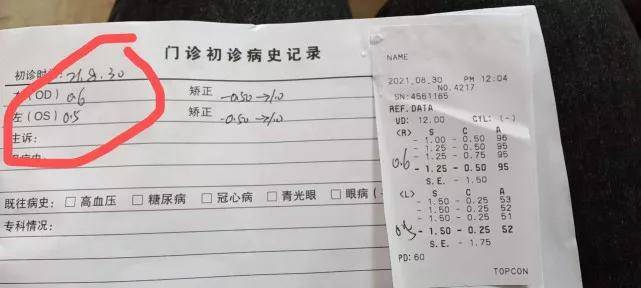 门诊初诊病史记录
初诊时间:21.8.30
右(OD) 0.6 矫正 -0.50→1.0
左(OS) 0.5 矫正 -0.50→1.0
主诉:
既往病史: □ 高血压 □ 糖尿病 □ 冠心病 □ 青光眼 □ 眼病(
专科情况:
NAME
2021_08_30 PM 12:04
NO.4217
SN:4561165
REF.DATA
VD: 12.00 CYL: (-)
<R> S C A
- 1.00 - 0.50 96
- 1.25 - 0.50 95
- 1.25 - 0.75 95
0.6 - 1.25 - 0.50 95
S.E. - 1.50
<L> S C A
- 1.50 - 0.25 53
- 1.50 - 0.25 52
- 1.50 - 0.25 51
0.5 - 1.50 - 0.25 52
S.E. - 1.75
PD: 60
TOPCON